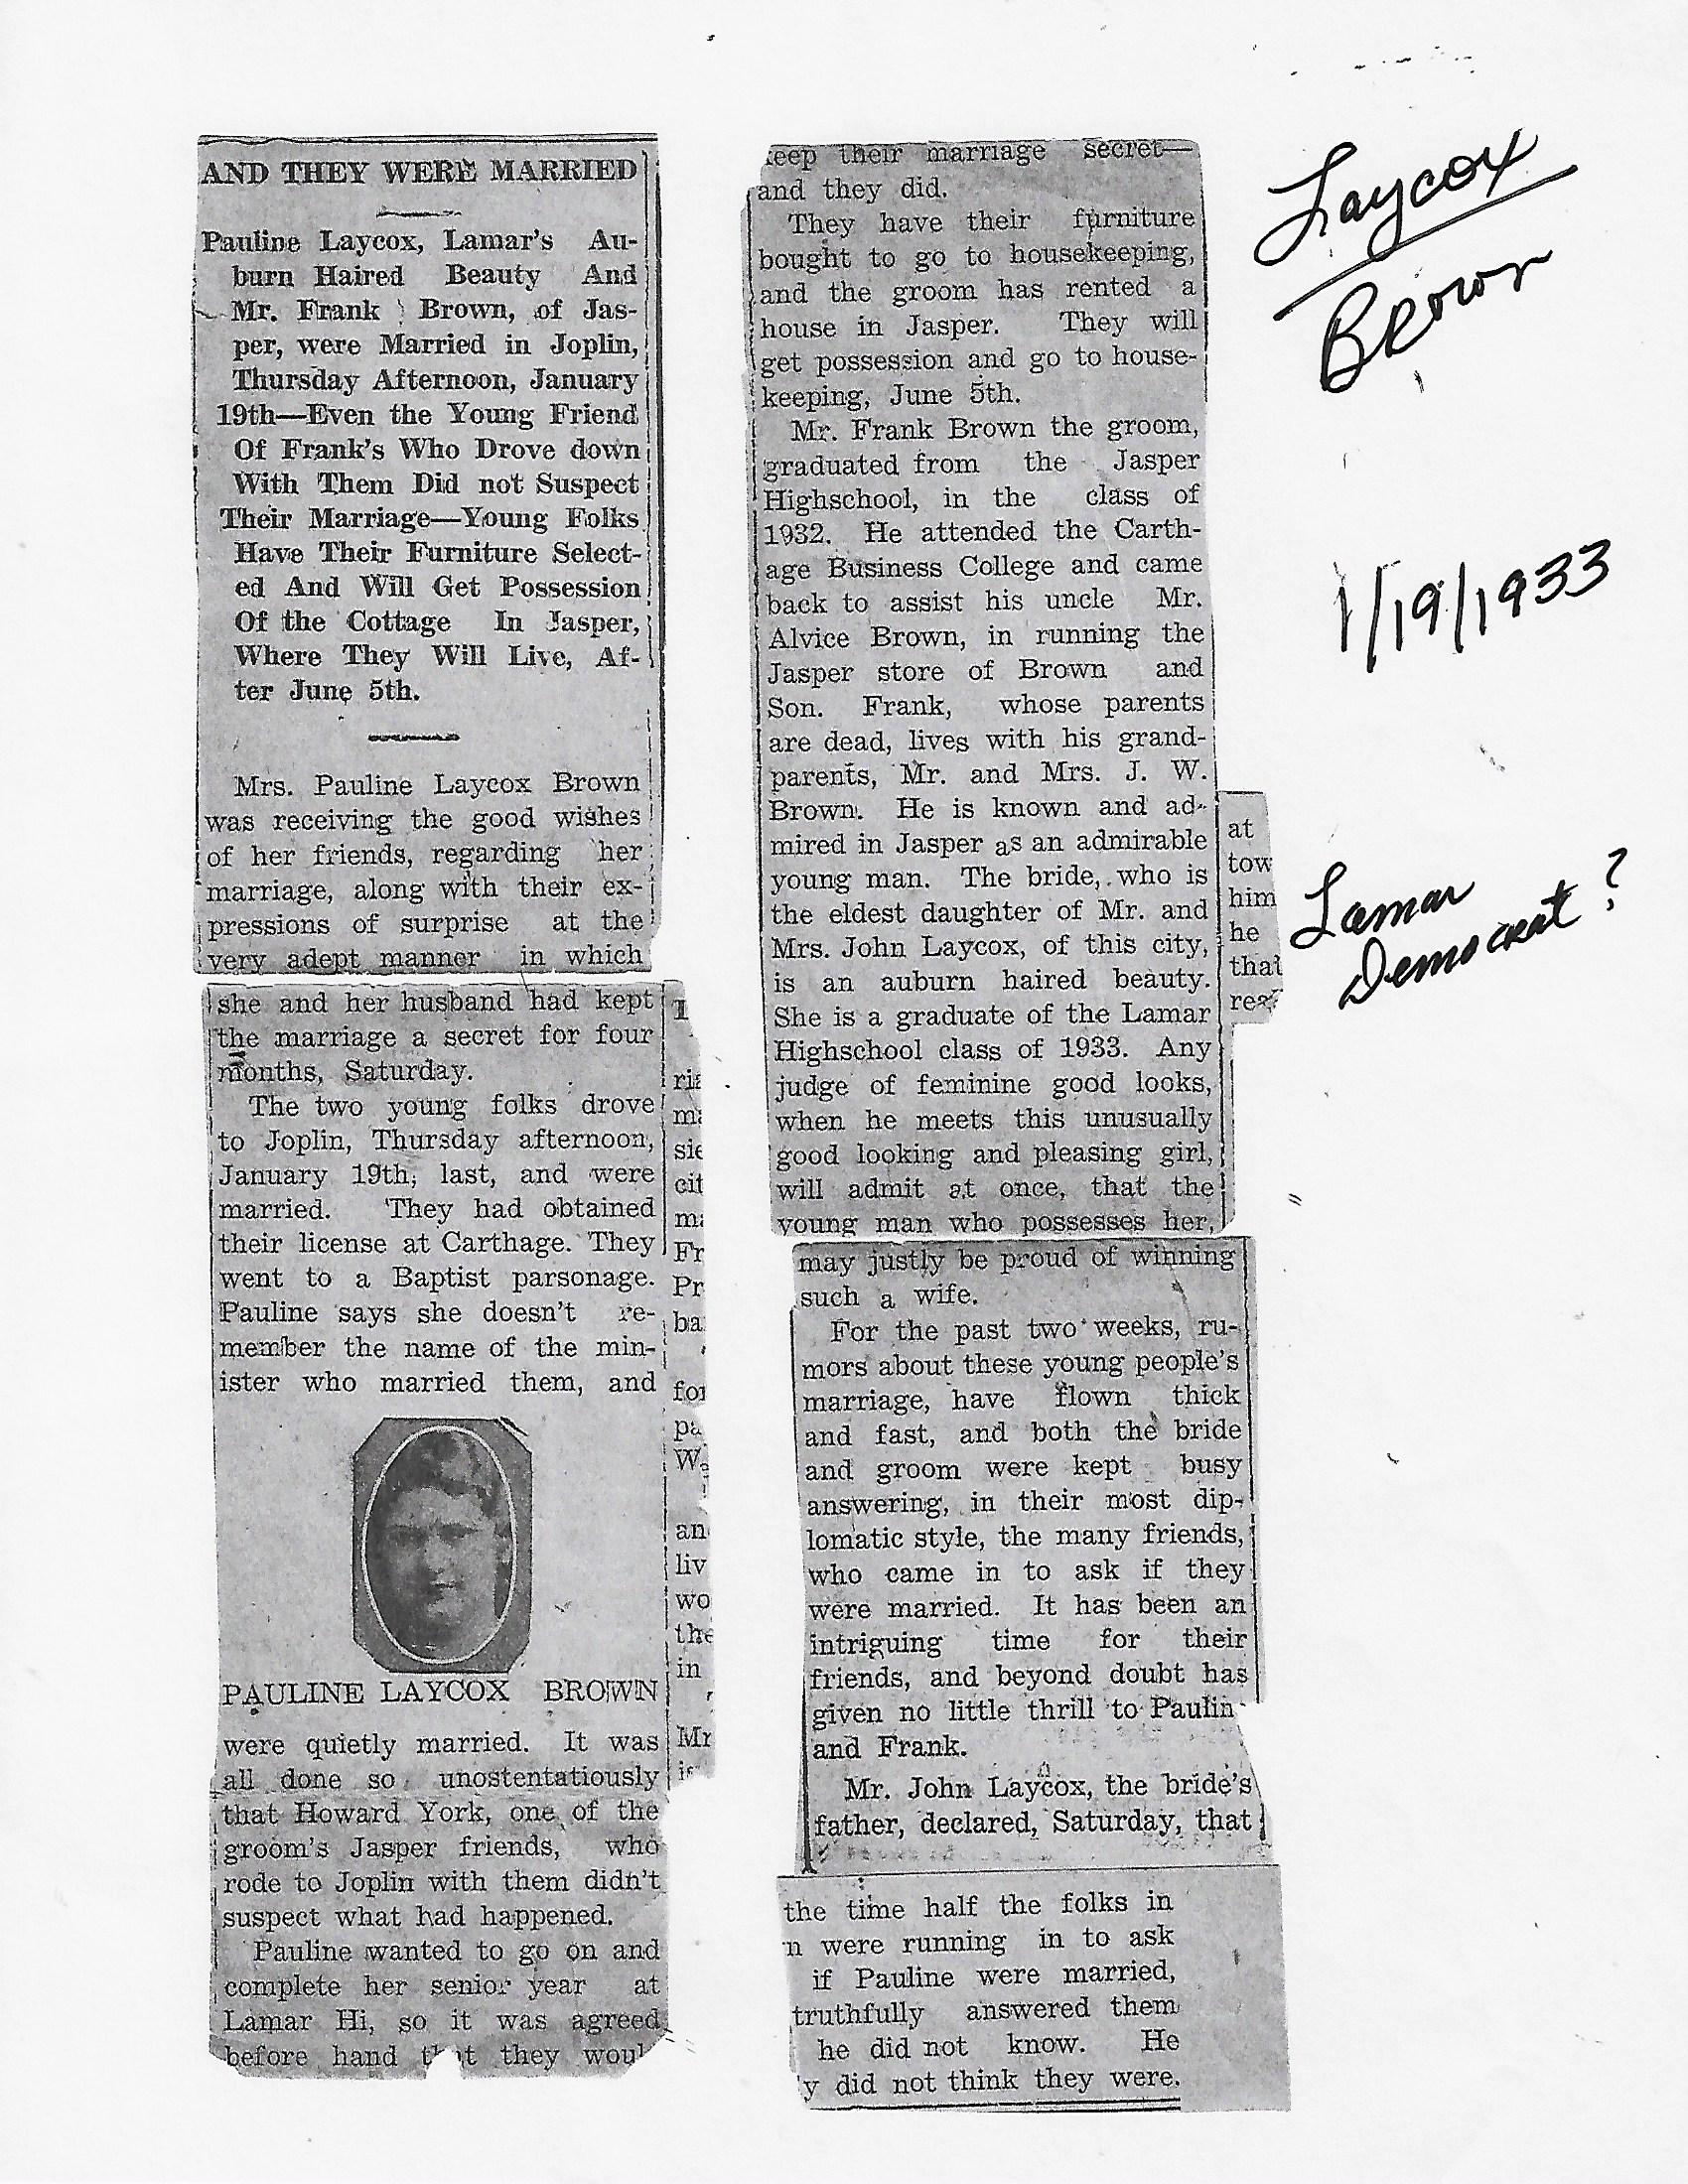 AND THEY WERE MARRIED
Pauline Laycox, Lamar's Au-
burn Haired Beauty And
Mr. Frank Brown, of Jas-
per, were Married in Joplin,
Thursday Afternoon, January
19th—Even the Young Friend
Of Frank's Who Drove down
With Them Did not Suspect
Their Marriage—Young Folks
Have Their Furniture Select-
ed And Will Get Possession
Of the Cottage In Jasper,
Where They Will Live, Af-
ter June 5th.
Mrs. Pauline Laycox Brown
was receiving the good wishes
of her friends, regarding her
marriage, along with their ex-
pressions of surprise at the
very adept manner in which
she and her husband had kept
the marriage a secret for four
months, Saturday.
The two young folks drove
to Joplin, Thursday afternoon,
January 19th, last, and were
married. They had obtained
their license at Carthage. They
went to a Baptist parsonage.
Pauline says she doesn't re-
member the name of the min-
ister who married them, and
PAULINE LAYCOX BROWN
were quietly married. It was
all done so unostentatiously
that Howard York, one of the
groom's Jasper friends, who
rode to Joplin with them didn't
suspect what had happened.
Pauline wanted to go on and
complete her senior year at
Lamar Hi, so it was agreed
before hand that they woul
ria
ma
sie
cit
ma
Fr
Pr
ba
for
pa
Wa
an
liv
wo
the
in
Mr
is
keep their marriage secret—
and they did.
They have their furniture
bought to go to housekeeping,
and the groom has rented a
house in Jasper. They will
get possession and go to house-
keeping, June 5th.
Mr. Frank Brown the groom,
graduated from the Jasper
Highschool, in the class of
1932. He attended the Carth-
age Business College and came
back to assist his uncle Mr.
Alvice Brown, in running the
Jasper store of Brown and
Son. Frank, whose parents
are dead, lives with his grand-
parents, Mr. and Mrs. J. W.
Brown. He is known and ad-
mired in Jasper as an admirable
young man. The bride, who is
the eldest daughter of Mr. and
Mrs. John Laycox, of this city,
is an auburn haired beauty.
She is a graduate of the Lamar
Highschool class of 1933. Any
judge of feminine good looks,
when he meets this unusually
good looking and pleasing girl,
will admit at once, that the
young man who possesses her,
may justly be proud of winning
such a wife.
For the past two weeks, ru-
mors about these young people's
marriage, have flown thick
and fast, and both the bride
and groom were kept busy
answering, in their most dip-
lomatic style, the many friends,
who came in to ask if they
were married. It has been an
intriguing time for their
friends, and beyond doubt has
given no little thrill to Paulin
and Frank.
Mr. John Laycox, the bride's
father, declared, Saturday, that
at
tow
him
he
that
rea
the time half the folks in
n were running in to ask
if Pauline were married,
truthfully answered them
he did not know. He
y did not think they were.
Laycox
Brown
1/19/1933
Lamar
Democrat?